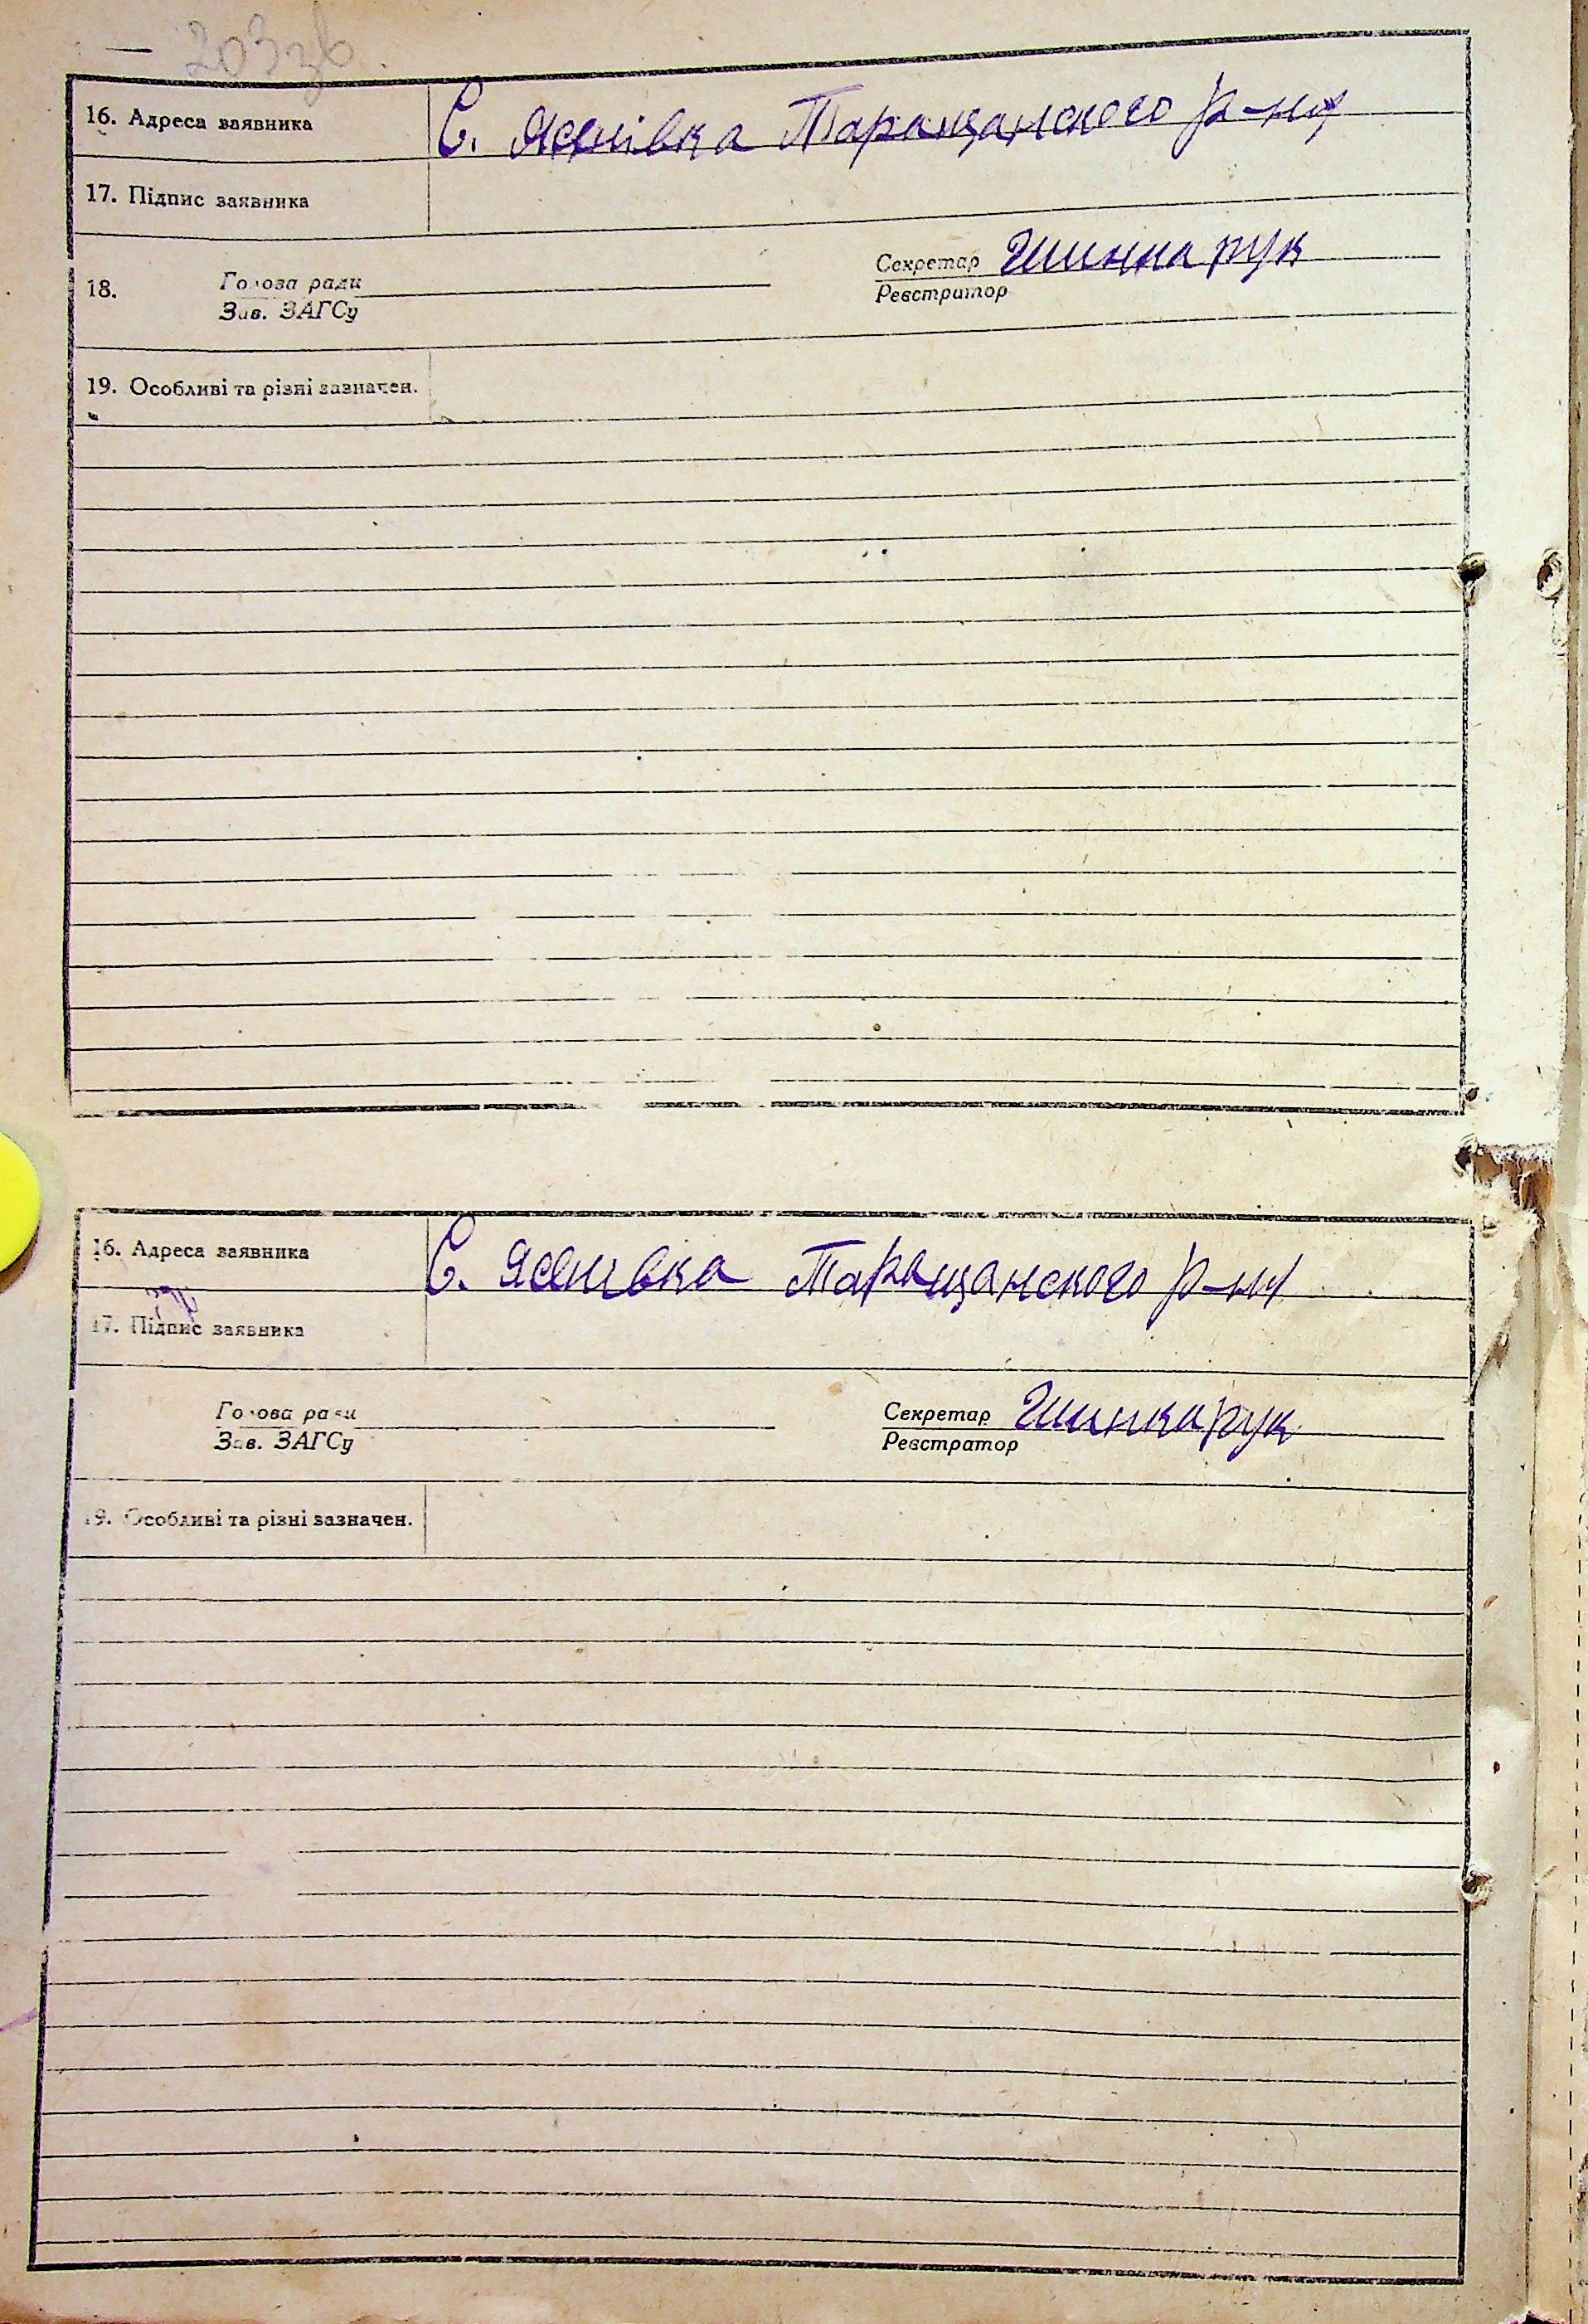 203зв.
16. Адреса заявника С. Ясенівка Таращанского р-на
17. Підпис заявника
18. Голова ради Секретар Шинкарук
Зав. ЗАГСу Реєстратор
19. Особливі та різні зазначен.
16. Адреса заявника С. Ясенівка Таращанского р-на
17. Підпис заявника
Голова ради Секретар Шинкарук
Зав. ЗАГСу Реєстратор
19. Особливі та різні зазначен.